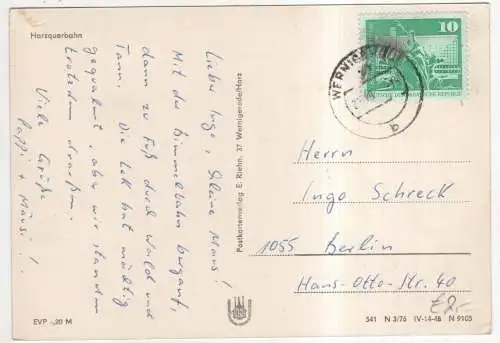 Harzquerbahn
Lieber Ingo, kleine Maus!
Mit der Bimmelbahn bergauf,
dann zu Fuß durch Wald und
Tann. Die Lok hat mächtig
gequalmt, aber wir standen
trotzdem draußen.
Viele Grüße
Pappi + Mausi!
EVP -,20 M
Postkartenverlag E. Riehn, 37 Wernigerode/Harz
10
DEUTSCHE DEMOKRATISCHE REPUBLIK
WERNIGERODE
b
Herrn
Ingo Schreck
1055 Berlin
Hans-Otto-Str. 40
€2,-
541 N 3/76 IV-14-48 N 9105